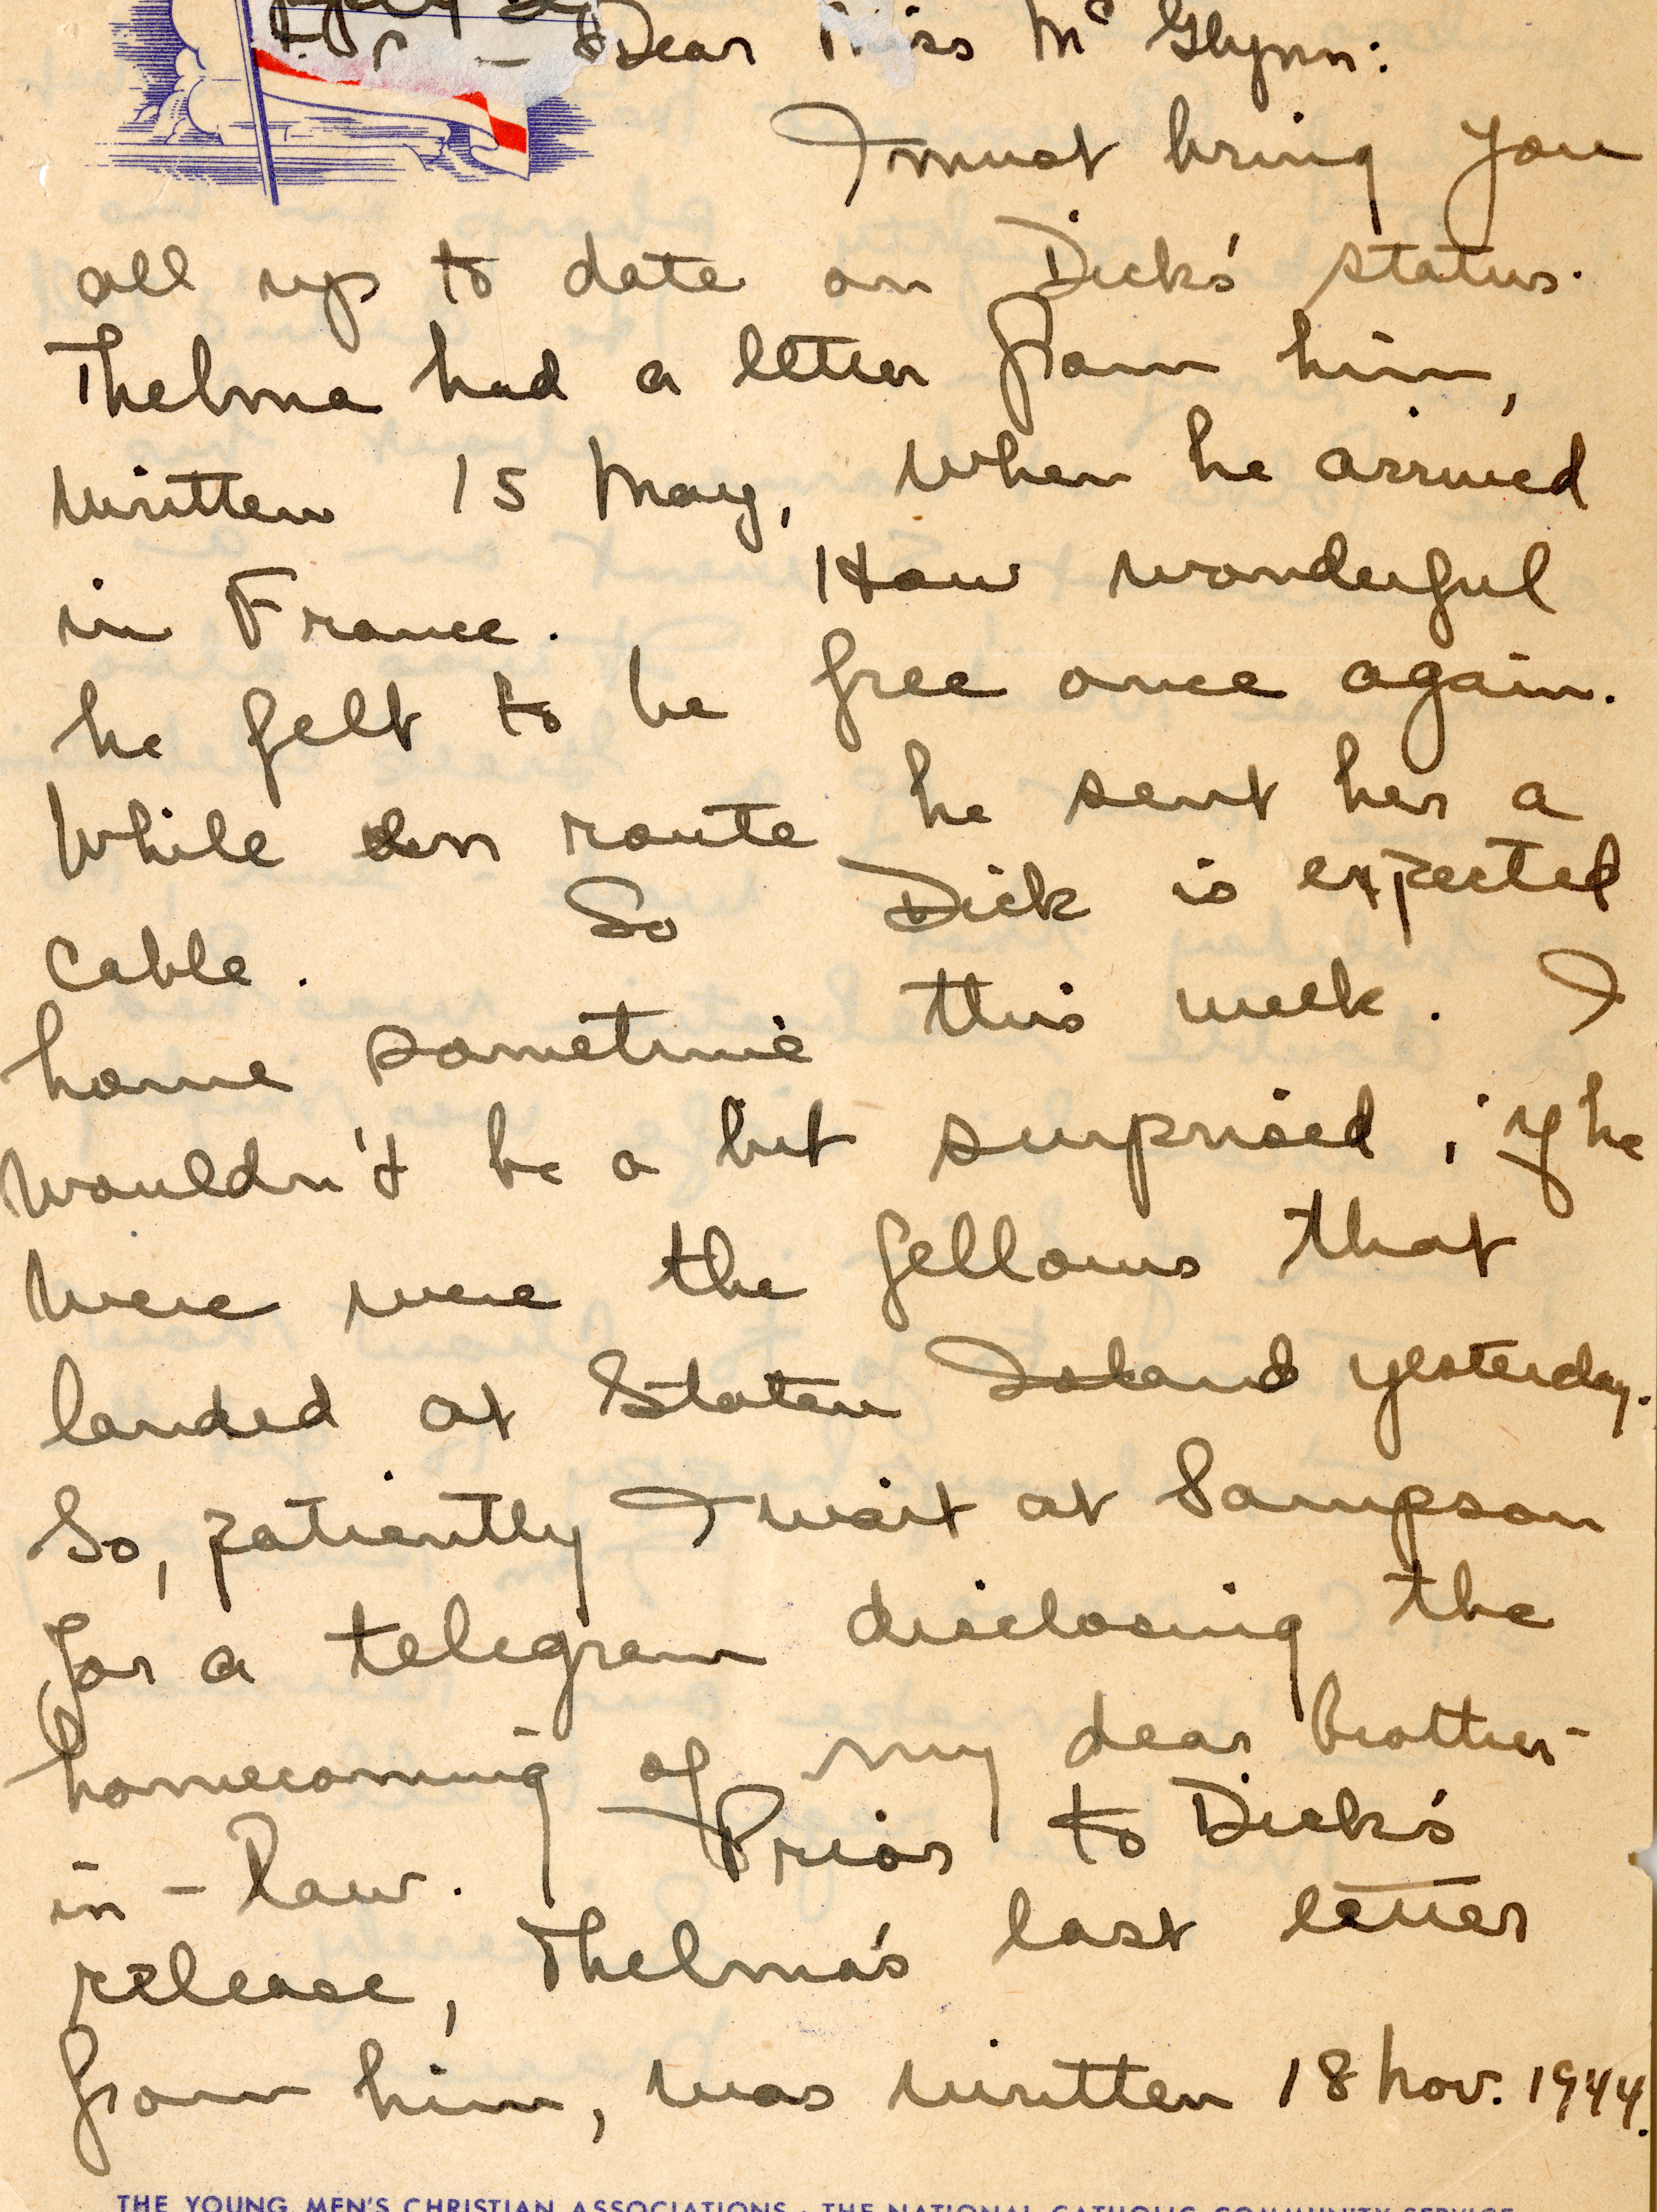 Dear Miss Mc Glynn:
I must bring you
all up to date on Dick's status.
Thelma had a letter from him,
written 15 May, when he arrived
in France. How wonderful
he felt to be free once again.
While en route he sent her a
cable. So Dick is expected
home sometime this week. I
wouldn't be a bit surprised, if he
were were the fellows that
landed at Staten Island yesterday.
So, patiently I wait at Sampson
for a telegram disclosing the
homecoming of my dear brother-
in-law. Prior to Dick's
release, Thelma's last letter
from him, was written 18 Nov. 1944.
THE YOUNG MEN'S CHRISTIAN ASSOCIATIONS · THE NATIONAL CATHOLIC COMMUNITY SERVICE